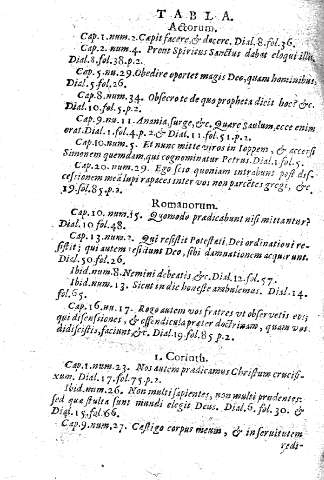 TABLA.
Actorum.
Cap.1.num.2. Capit facere, & docere. Dial.8.fol.36.
Cap.2. num.4. Prout Spiritus Sanctus dabat eloqui illis.
Dial.8.fol.38.p.2.
Cap.5.nu.29. Obedire oportet magis Deo, quam hominibus,
Dial.5.fol.26.
Cap.8.num.34. Obsecro te de quo propheta dicit hoc? &c.
Dial.10.fol.5.p.2.
Cap.9.nu.11. Anania, surge, &c. Quare Saulum, ecce enim
orat. Dial.1.fol.4.p.2. & Dial.11.fol.51.p.2.
Cap.10.num.5. Et nunc mitte viros in Ioppem, & accersi
Simonem quemdam, qui cognominatur Petrus. Dial.1.fol.5.
Cap.20.num.29. Ego scio quoniam intrabunt post dis-
cessionem meã lupi rapaces inter vos non parcẽtes gregi, &c,
19.fol.85.p.2.
Romanorum.
Cap.10.num.15. Quomodo prædicabunt nisi mittantur?
Dial.10.fol.48.
Cap.13.num.2. Qui resistit Potestati, Dei ordinationi re-
sistit; qui autem resistunt Deo, sibi damnationem acquirunt.
Dial.50.fol.26.
Ibid.num.8. Nemini debeatis &c. Dial.12.fol.57.
Ibid.num.13. Sicut in die honeste ambulemus. Dial.14.
fol.65.
Cap.16.nu.17. Rogo autem vos fratres vt observetis eos;
qui dissensiones, & offendicula præter doctrinam, quam vos
didicistis, faciunt, &c. Dial.19.fol.85 p.2.
1. Corinth.
Cap.1.num.23. Nos autem prædicamus Christum crucifi-
xum. Dial.17.fol.75.p.2.
Ibid.num.26. Non multi sapientes, non multi prudentes:
sed quæ stulta sunt mundi elegit Deus. Dial.6.fol.30. &
Dial.15.fol.66.
Cap.9.num.27. Castigo corpus meum, & in servitutem
redi-